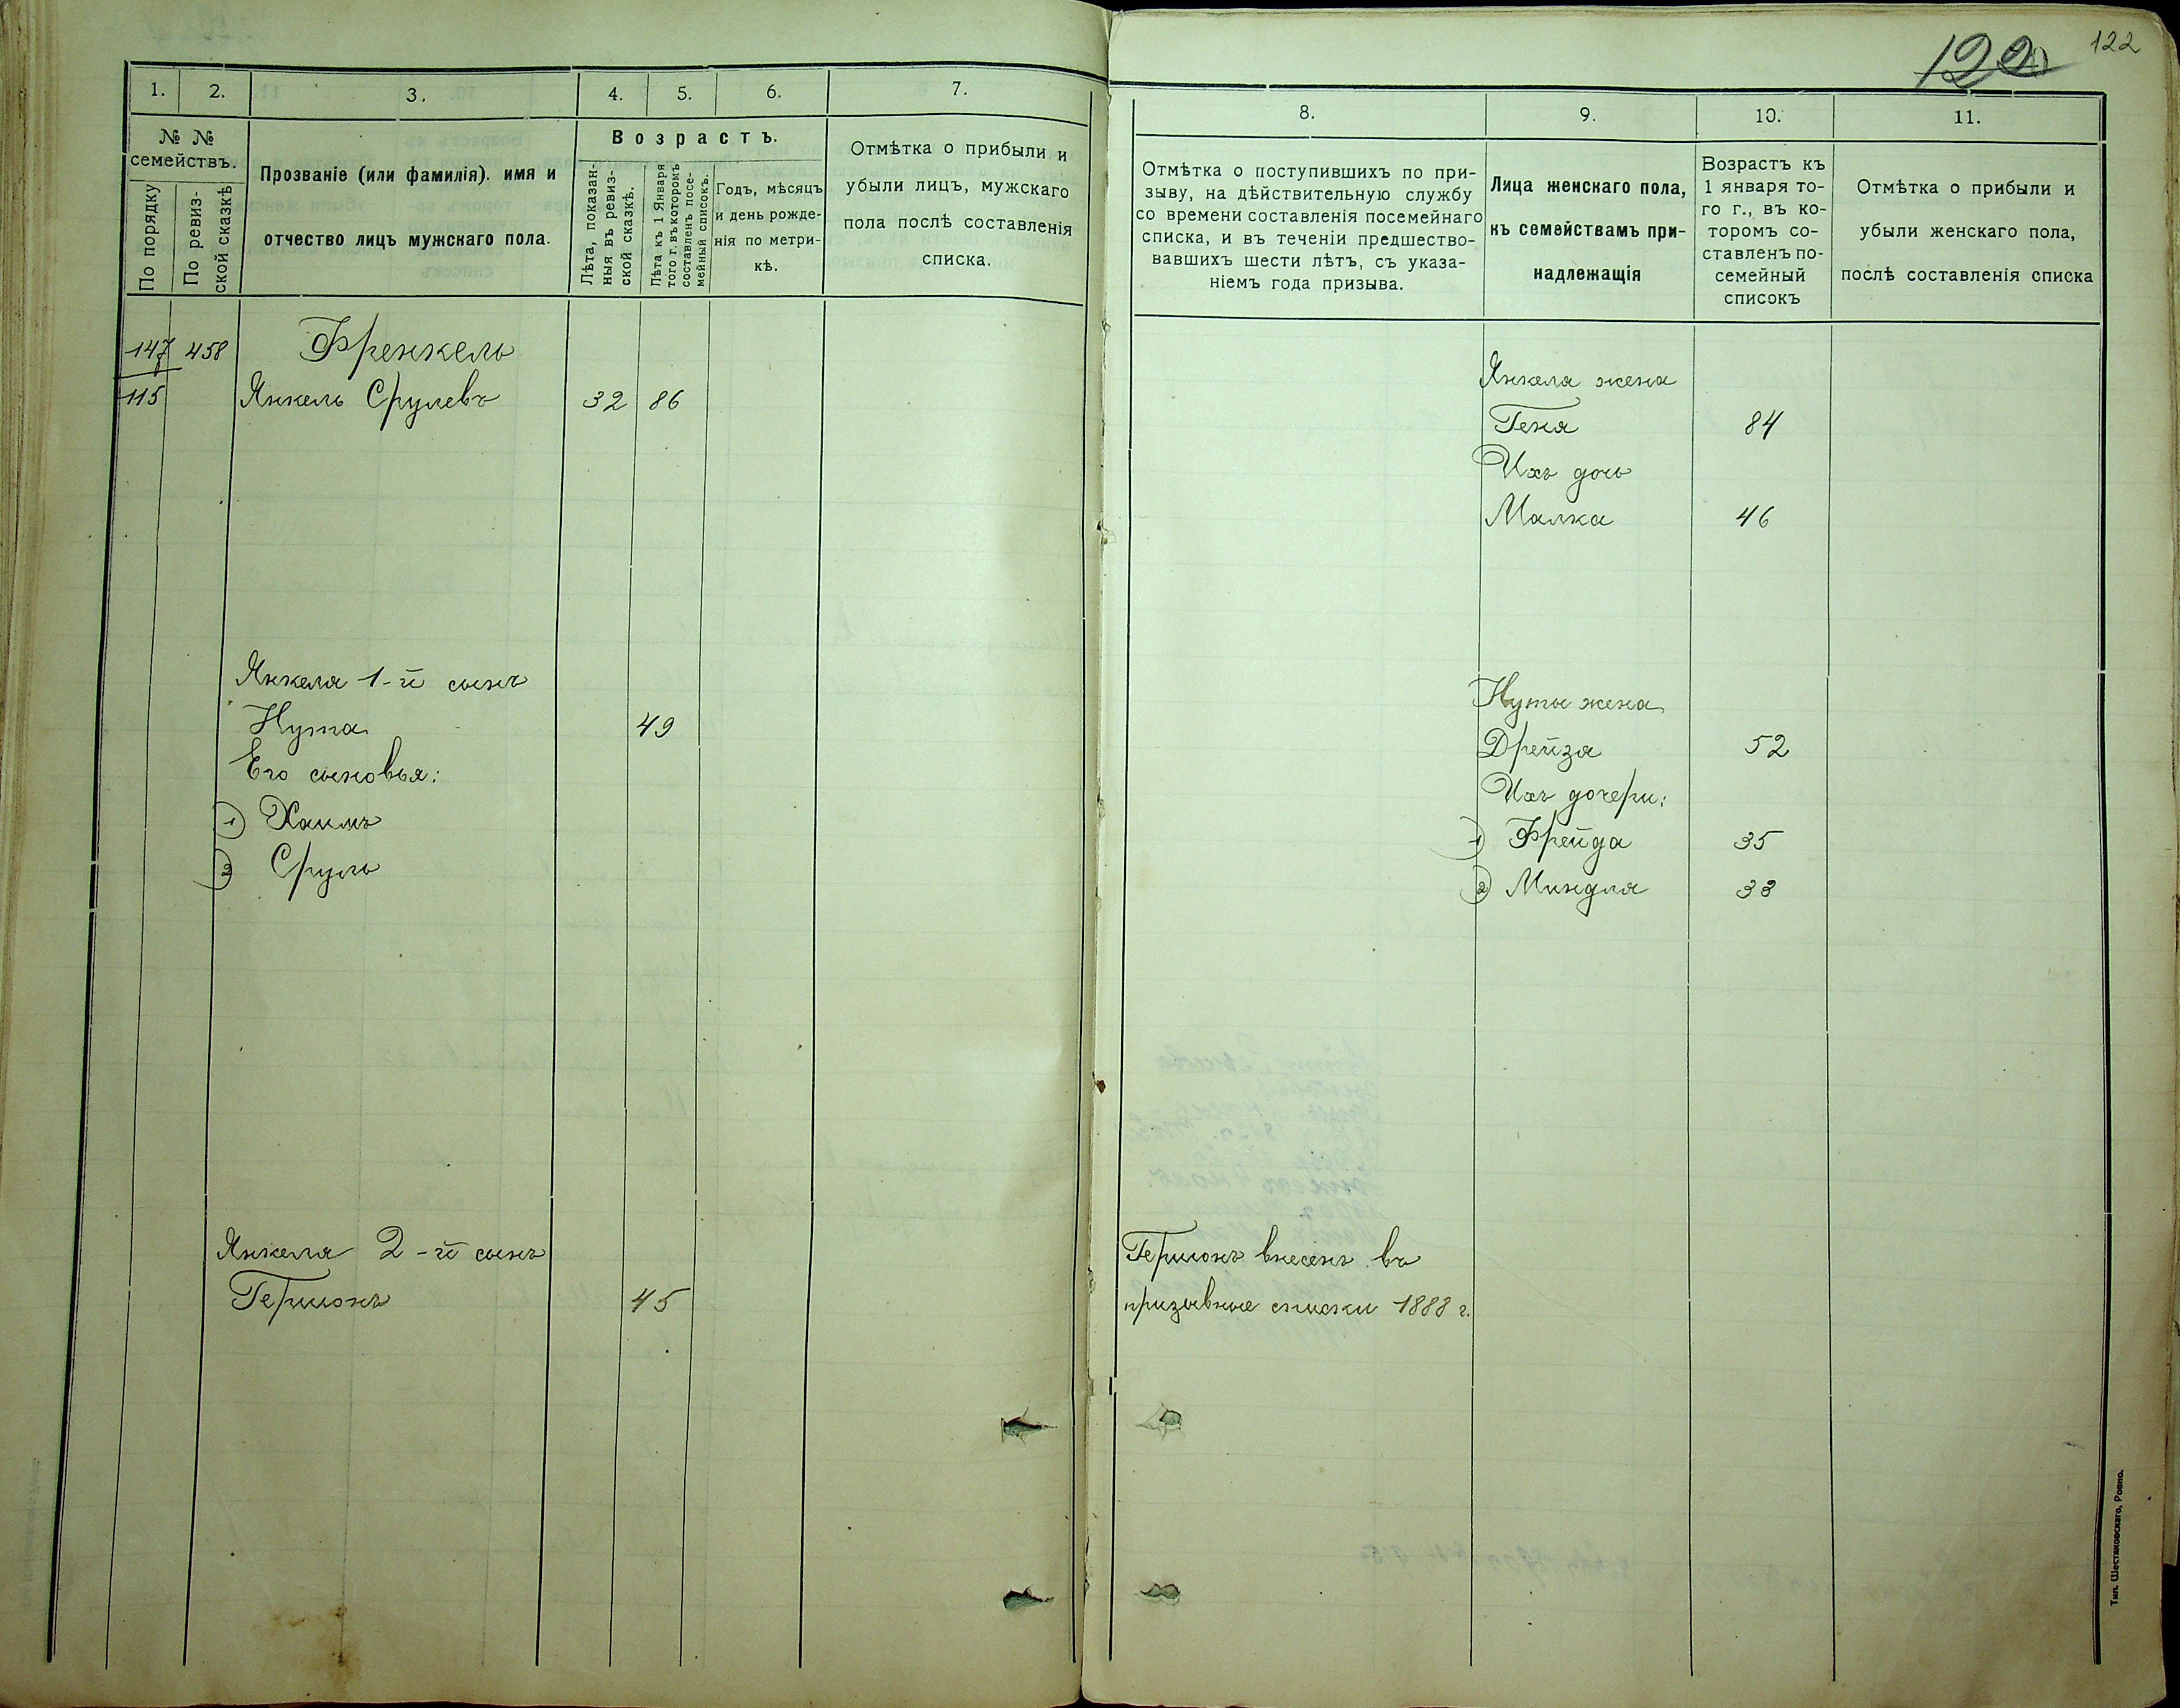 122
122
1.
2.
3.
4.
5.
6.
7.
№ №
семействъ.
По порядку
По ревиз-
ской сказкѣ
Прозваніе (или фамилія). имя и
отчество лицъ мужскаго пола.
Возрастъ.
Лѣта, показан-
ныя въ ревиз-
ской сказкѣ.
Лѣта къ 1 Января
того г. въ которомъ
составленъ посе-
мейный списокъ.
Годъ, мѣсяцъ
и день рожде-
нія по метри-
кѣ.
Отмѣтка о прибыли и
убыли лицъ, мужскаго
пола послѣ составленія
списка.
147 458 Френкель
115 Янкель Срулевъ 32 86
Янкеля 1-й сынъ
Нута 49
Его сыновья:
1) Хаимъ
2) Сруль
Янкеля 2-й сынъ
Гершонъ 45
8.
9.
10.
11.
Отмѣтка о поступившихъ по при-
зыву, на дѣйствительную службу
со времени составленія посемейнаго
списка, и въ теченіи предшество-
вавшихъ шести лѣтъ, съ указа-
ніемъ года призыва.
Лица женскаго пола,
къ семействамъ при-
надлежащія
Возрастъ къ
1 января то-
го г., въ ко-
торомъ со-
ставленъ по-
семейный
списокъ
Отмѣтка о прибыли и
убыли женскаго пола,
послѣ составленія списка
Янкеля жена
Геня 84
Ихъ дочь
Малка 46
Нуты жена
Дрейзя 52
Ихъ дочери:
1) Фрейда 35
2) Миндля 33
Гершонъ внесенъ въ
призывные списки 1888 г.
Тип. Шестаковскаго, Ровно.